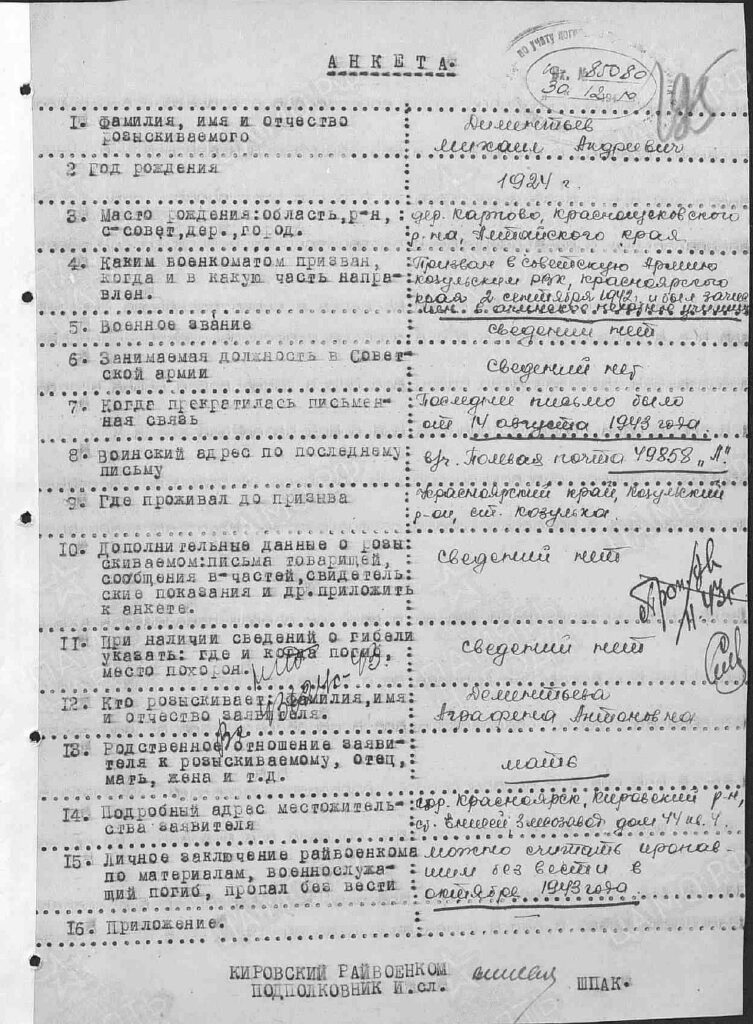 АНКЕТА.
по учету
Вх. № 85080
30 12
195
1. Фамилия, имя и отчество
розыскиваемого
Дементьев
Михаил Андреевич
2 Год рождения
1924 г.
3. Масто рождения:область,р-н,
с-совет,дер.,город.
дер. Карпово, Краснощековского
р-на, Алтайского края
4. Каким военкоматом призван,
когда и в какую часть направ-
лен.
Призван в советскую Армию
Козульским РВК, Красноярского
края 2 сентября 1942г. и был зачис
лен в ачинское пехотное училище
5. Военное звание
сведений нет
6. Занимаемая должность в Совет-
ской армии
Сведений нет
7. Когда прекратилась письмен-
ная связь
Последнее письмо было
от 14 августа 1943 года.
8. Воинский адрес по последнему
письму
в/ч. Полевая почта 49858 „Л".
9. Где проживал до призыва
Красноярский край, Козульский
р-он, ст. Козулька.
10. Дополнительные данные о розы
скиваемом:письма товарищей,
сообщения в-частей,свидетель
ские показания и др.приложить
к анкете.
сведений нет
11. При наличии сведений о гибели
указать: где и когда погиб,
место похорон.
сведений нет
12. Кто розыскивает: фамилия,имя
и отчество заявителя.
Дементьева
Аграфена Антоновна
13. Родственное отношение заяви-
теля к розыскиваемому, отец,
мать, жена и т.д.
мать
14. Подробный адрес местожитель-
ства заявителя
гор. Красноярск, Кировский р-н,
дом 44 кв. 4.
15. Личное заключение райвоенкома
по материалам, военнослужа-
щий погиб, пропал без вести
можно считать пропав-
шим без вести в
октябре 1943 года.
16. Приложение.
КИРОВСКИЙ РАЙВОЕНКОМ
ПОДПОЛКОВНИК И.сл.
ШПАК.